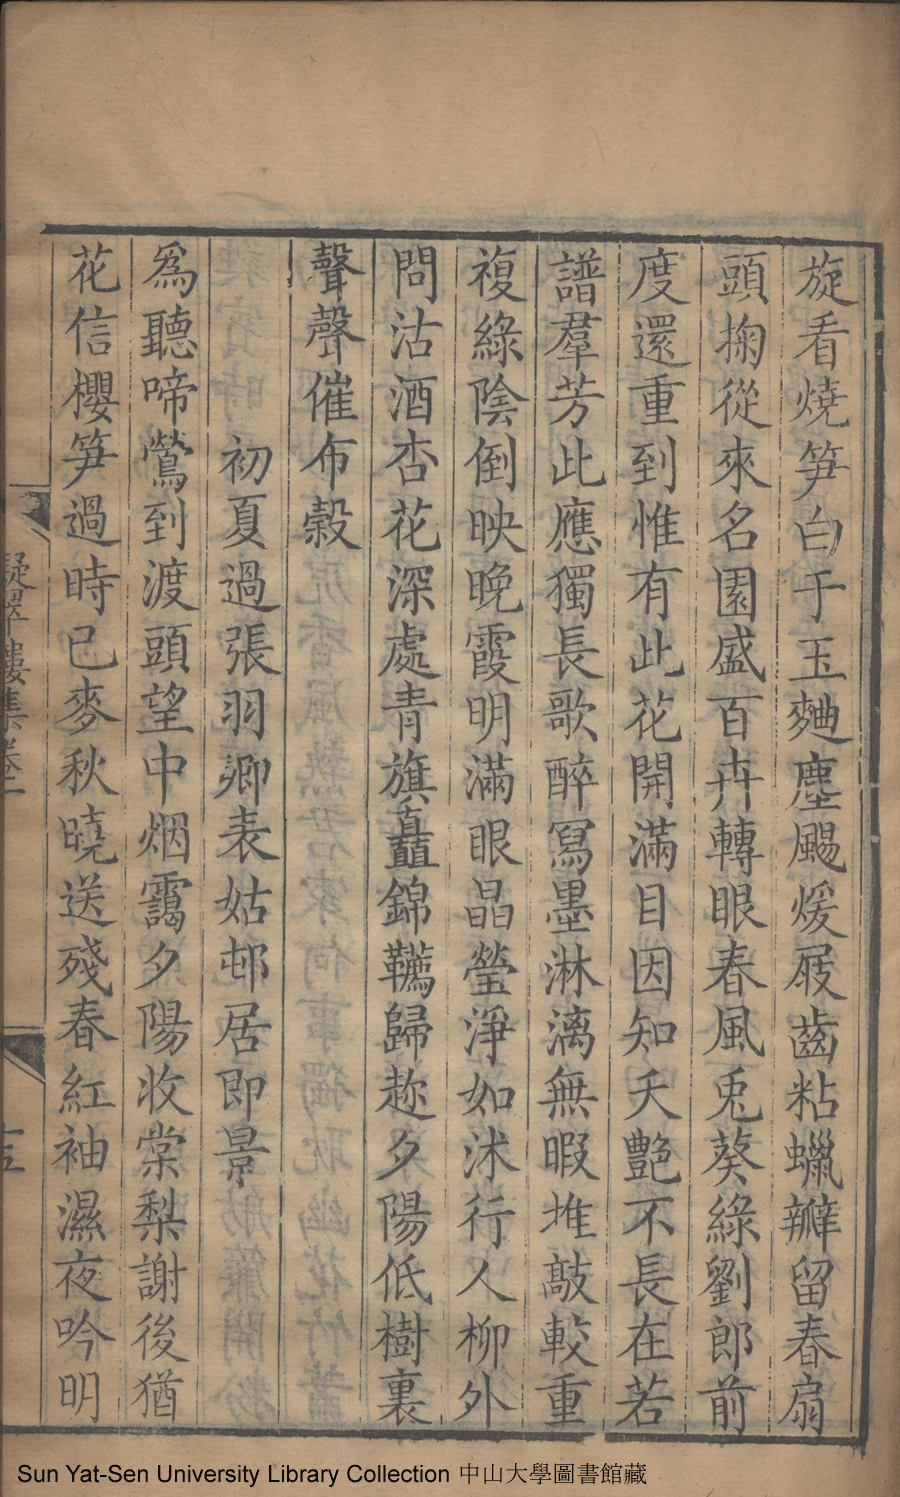 旋看燒笋白于玉麯塵颺煖屐齒粘蠟瓣留春扇
頭掬從來名園盛百卉轉眼春風兎葵綠劉郎前
度還重到惟有此花開滿目因知夭艷不長在若
譜羣芳此應獨長歌醉寫墨淋漓無暇推敲較重
複綠陰倒映晩霞明滿眼晶瑩淨如沐行人柳外
問沽酒杏花深處青旗矗錦韉歸趂夕陽低樹裏
聲聲催布穀
初夏過張羽卿表姑邨居即景
爲聽啼鶯到渡頭望中烟靄夕陽收棠梨謝後猶
花信櫻笋過時已麥秋曉送殘春紅袖濕夜吟明
凝翠樓集卷一
十五
Sun Yat-Sen University Library Collection 中山大學圖書館藏